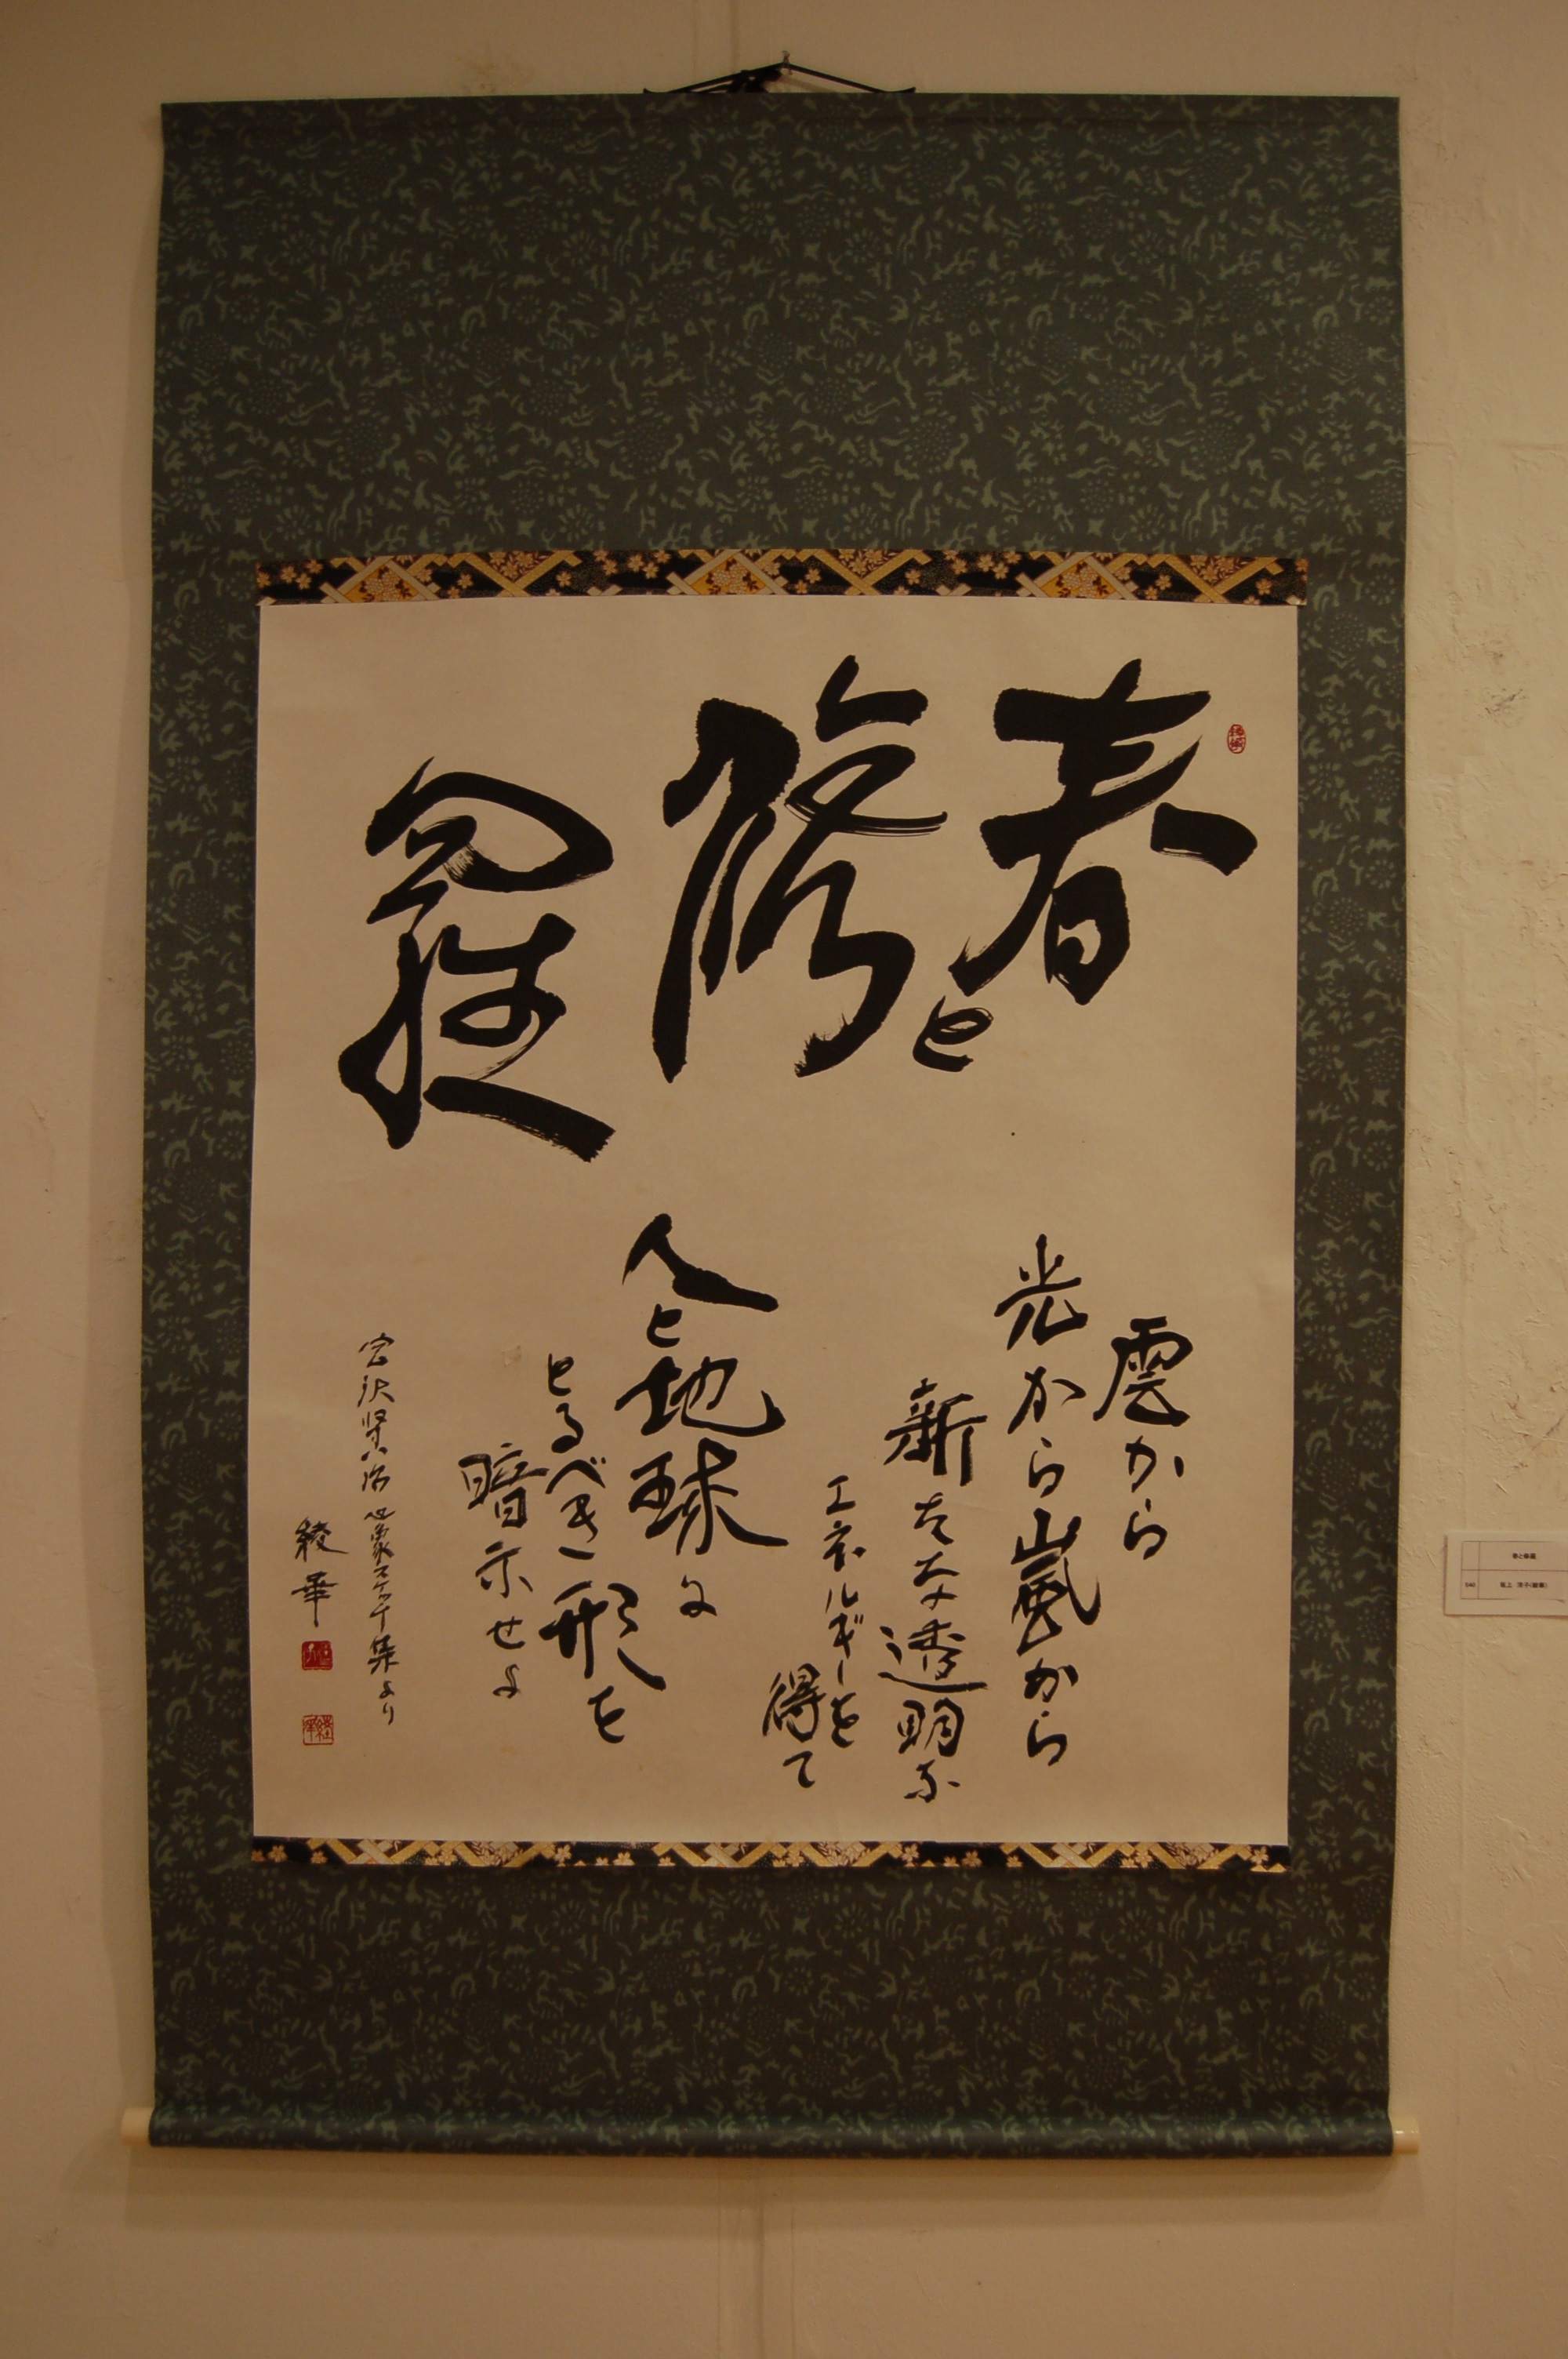 春と修羅
雲から
光から嵐から
新たな透明な
エネルギーを
得て
人と地球に
とるべき形を
暗示せよ
宮沢賢治 心象スケッチ集より
綾華
春と修羅